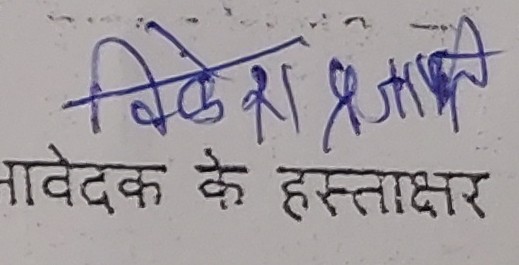 विकेश प्रजापति
आवेदक के हस्ताक्षर